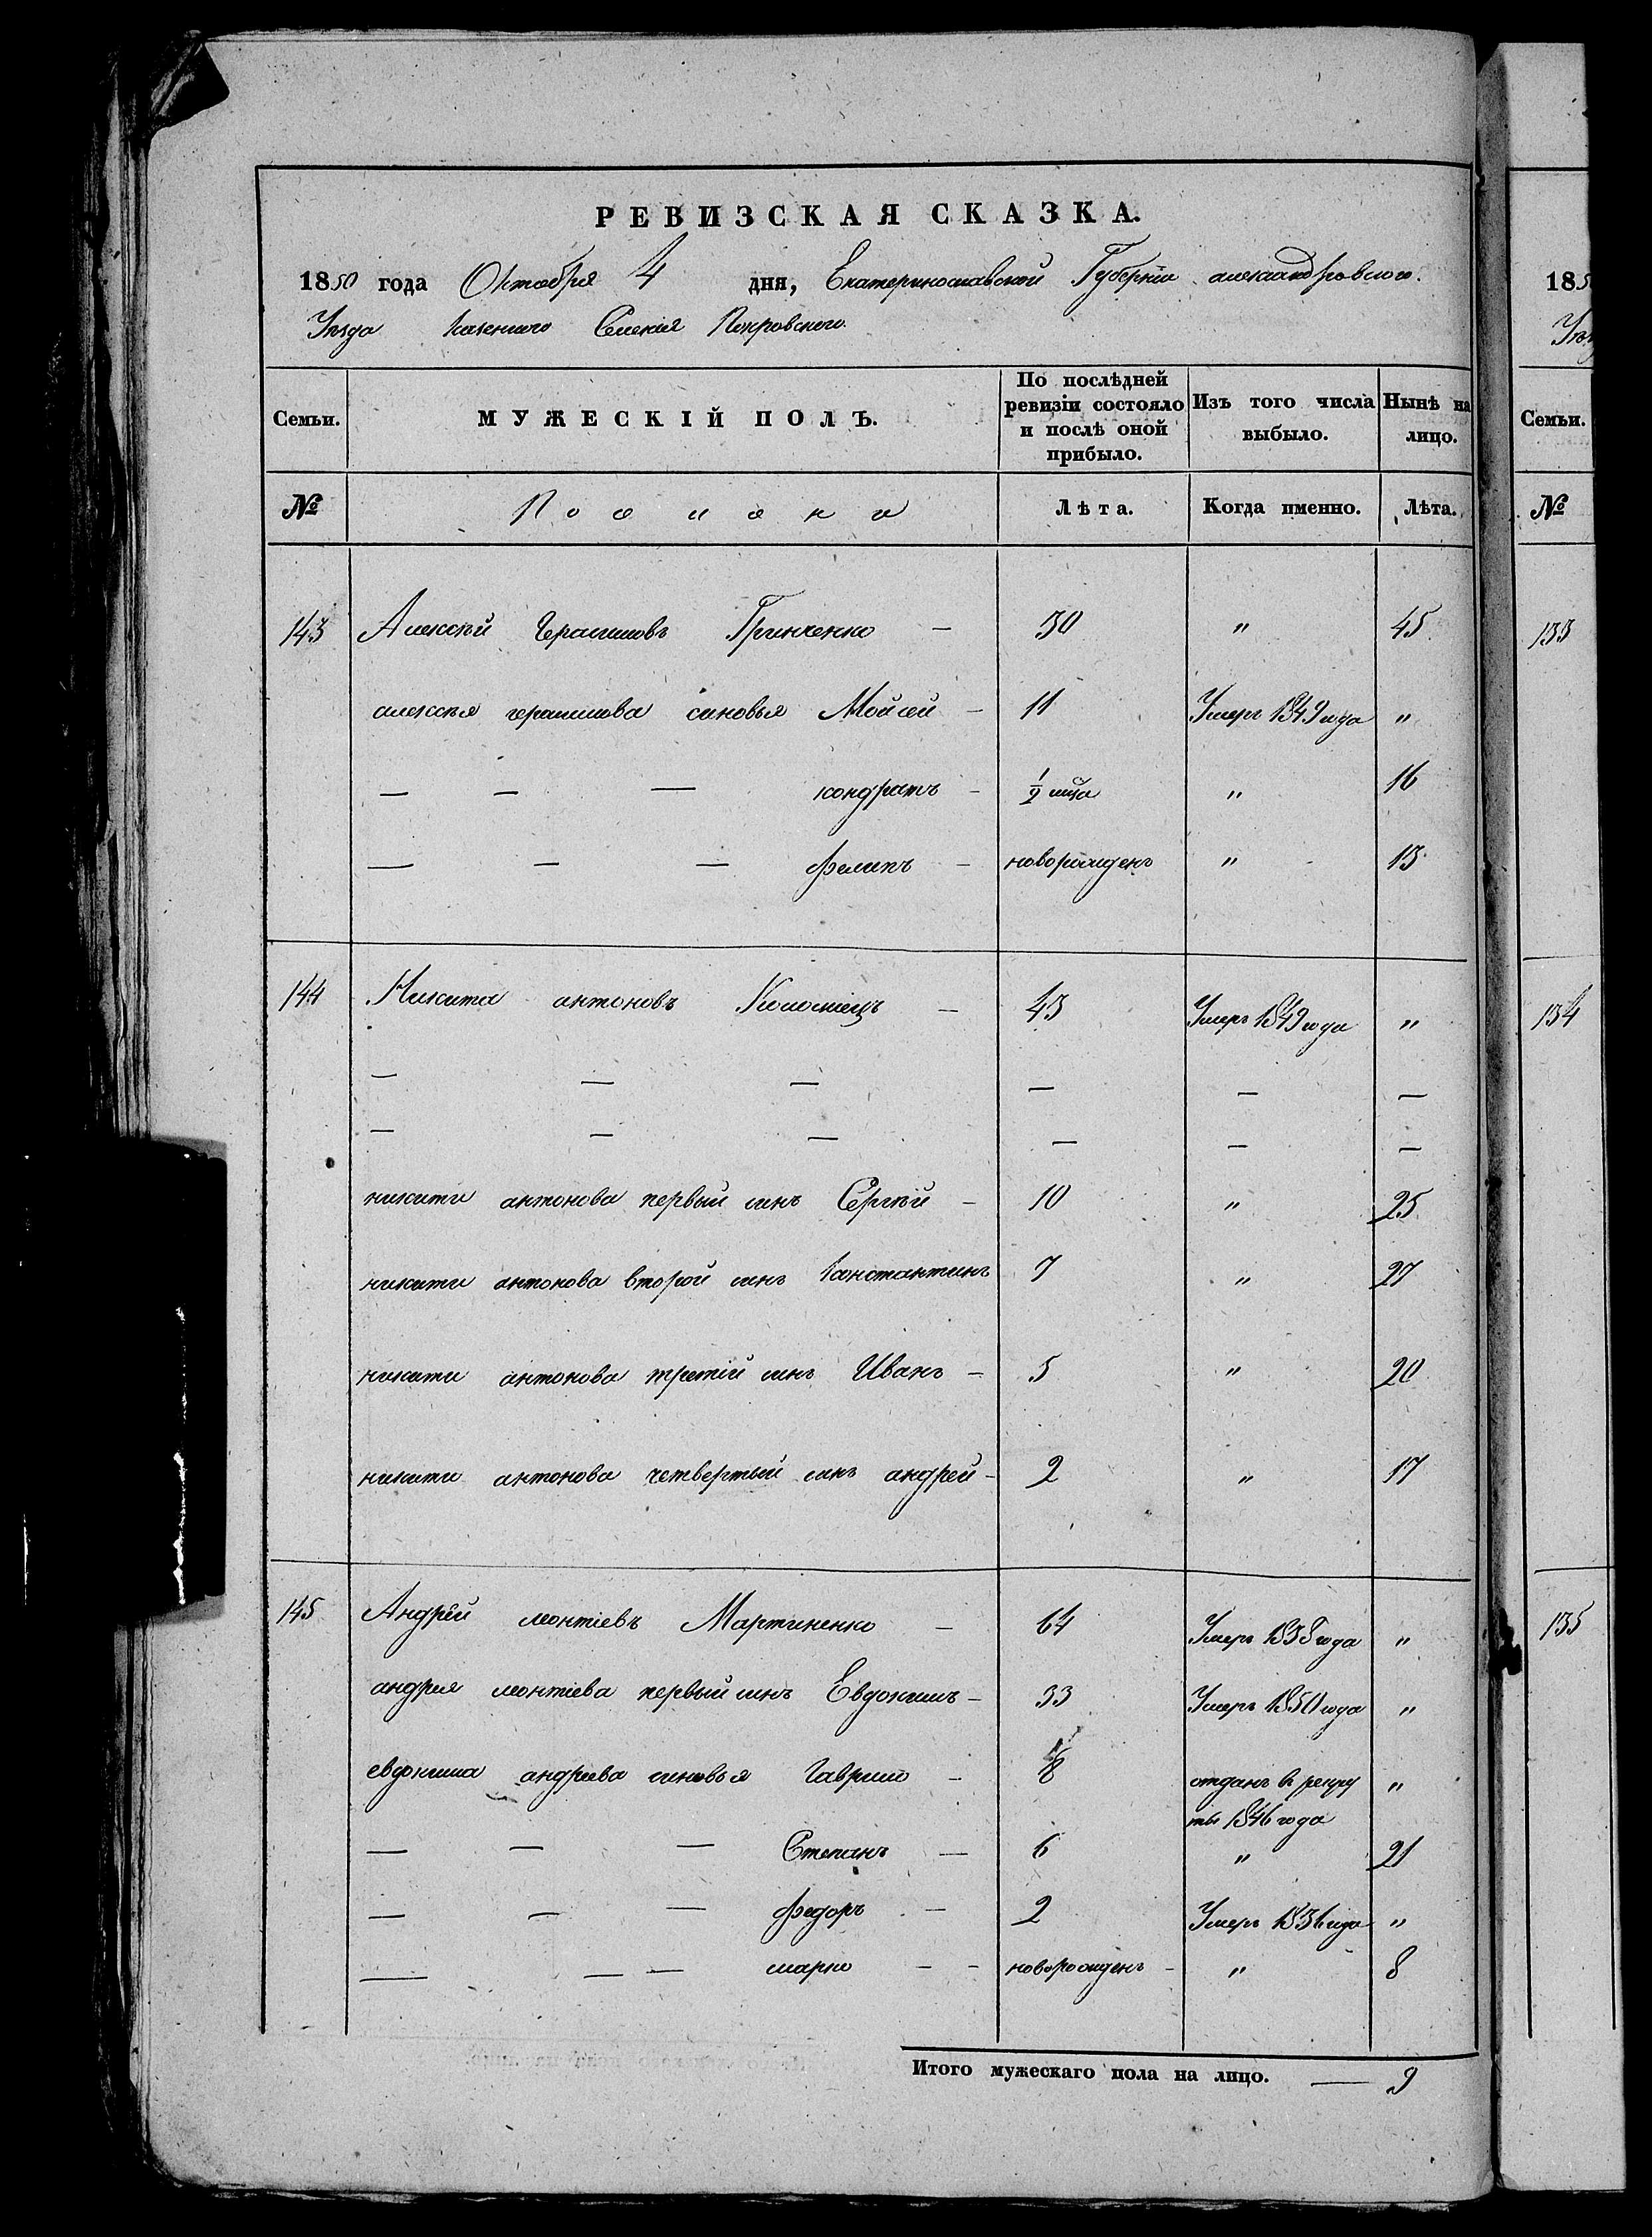 РЕВИЗСКАЯ СКАЗКА.
1850 года Октября 4 дня, Екатеринославской Губерніи александровского.
Уезда Казенного Селенія Покровского.
Семьи. МУЖЕСКІЙ ПОЛЪ. По послѣдней ревизіи состояло и послѣ оной прибыло. Изъ того числа выбыло. Нынѣ на лицо.
№ Лѣта. Когда именно. Лѣта.
143 Алексѣй Герасимовъ Гринченко — 30 " 45
алексѣя герасимова синовья Мойсей - 11 Умеръ 1849 года "
— — — кондратъ - 1/2 мца " 16
— — — филипъ - новорожденъ " 13
144 Никита антоновъ Коломіецъ — 43 Умеръ 1849 года "
— — — — — —
— — — — — —
никити антонова первый синъ Сергѣй - 10 " 25
никити антонова второй синъ Константинъ 7 " 27
никити антонова третій синъ Иванъ - 5 " 20
никити антонова четвертый синъ андрей - 2 " 17
145 Андрей леонтіевъ Мартиненко — 64 Умеръ 1838 года "
андрея леонтіева первый синъ Евдокимъ - 33 Умеръ 1850 года "
евдокима андреева синовья Гаврило - 8 отданъ в рекру "
ты 1846 года
— — — Степанъ — 6 " 21
— — — федоръ - 2 Умеръ 1836 года "
— — — марко - - новорожденъ - " 8
Итого мужескаго пола на лицо. — 9
185
Семьи.
№
133
134
135